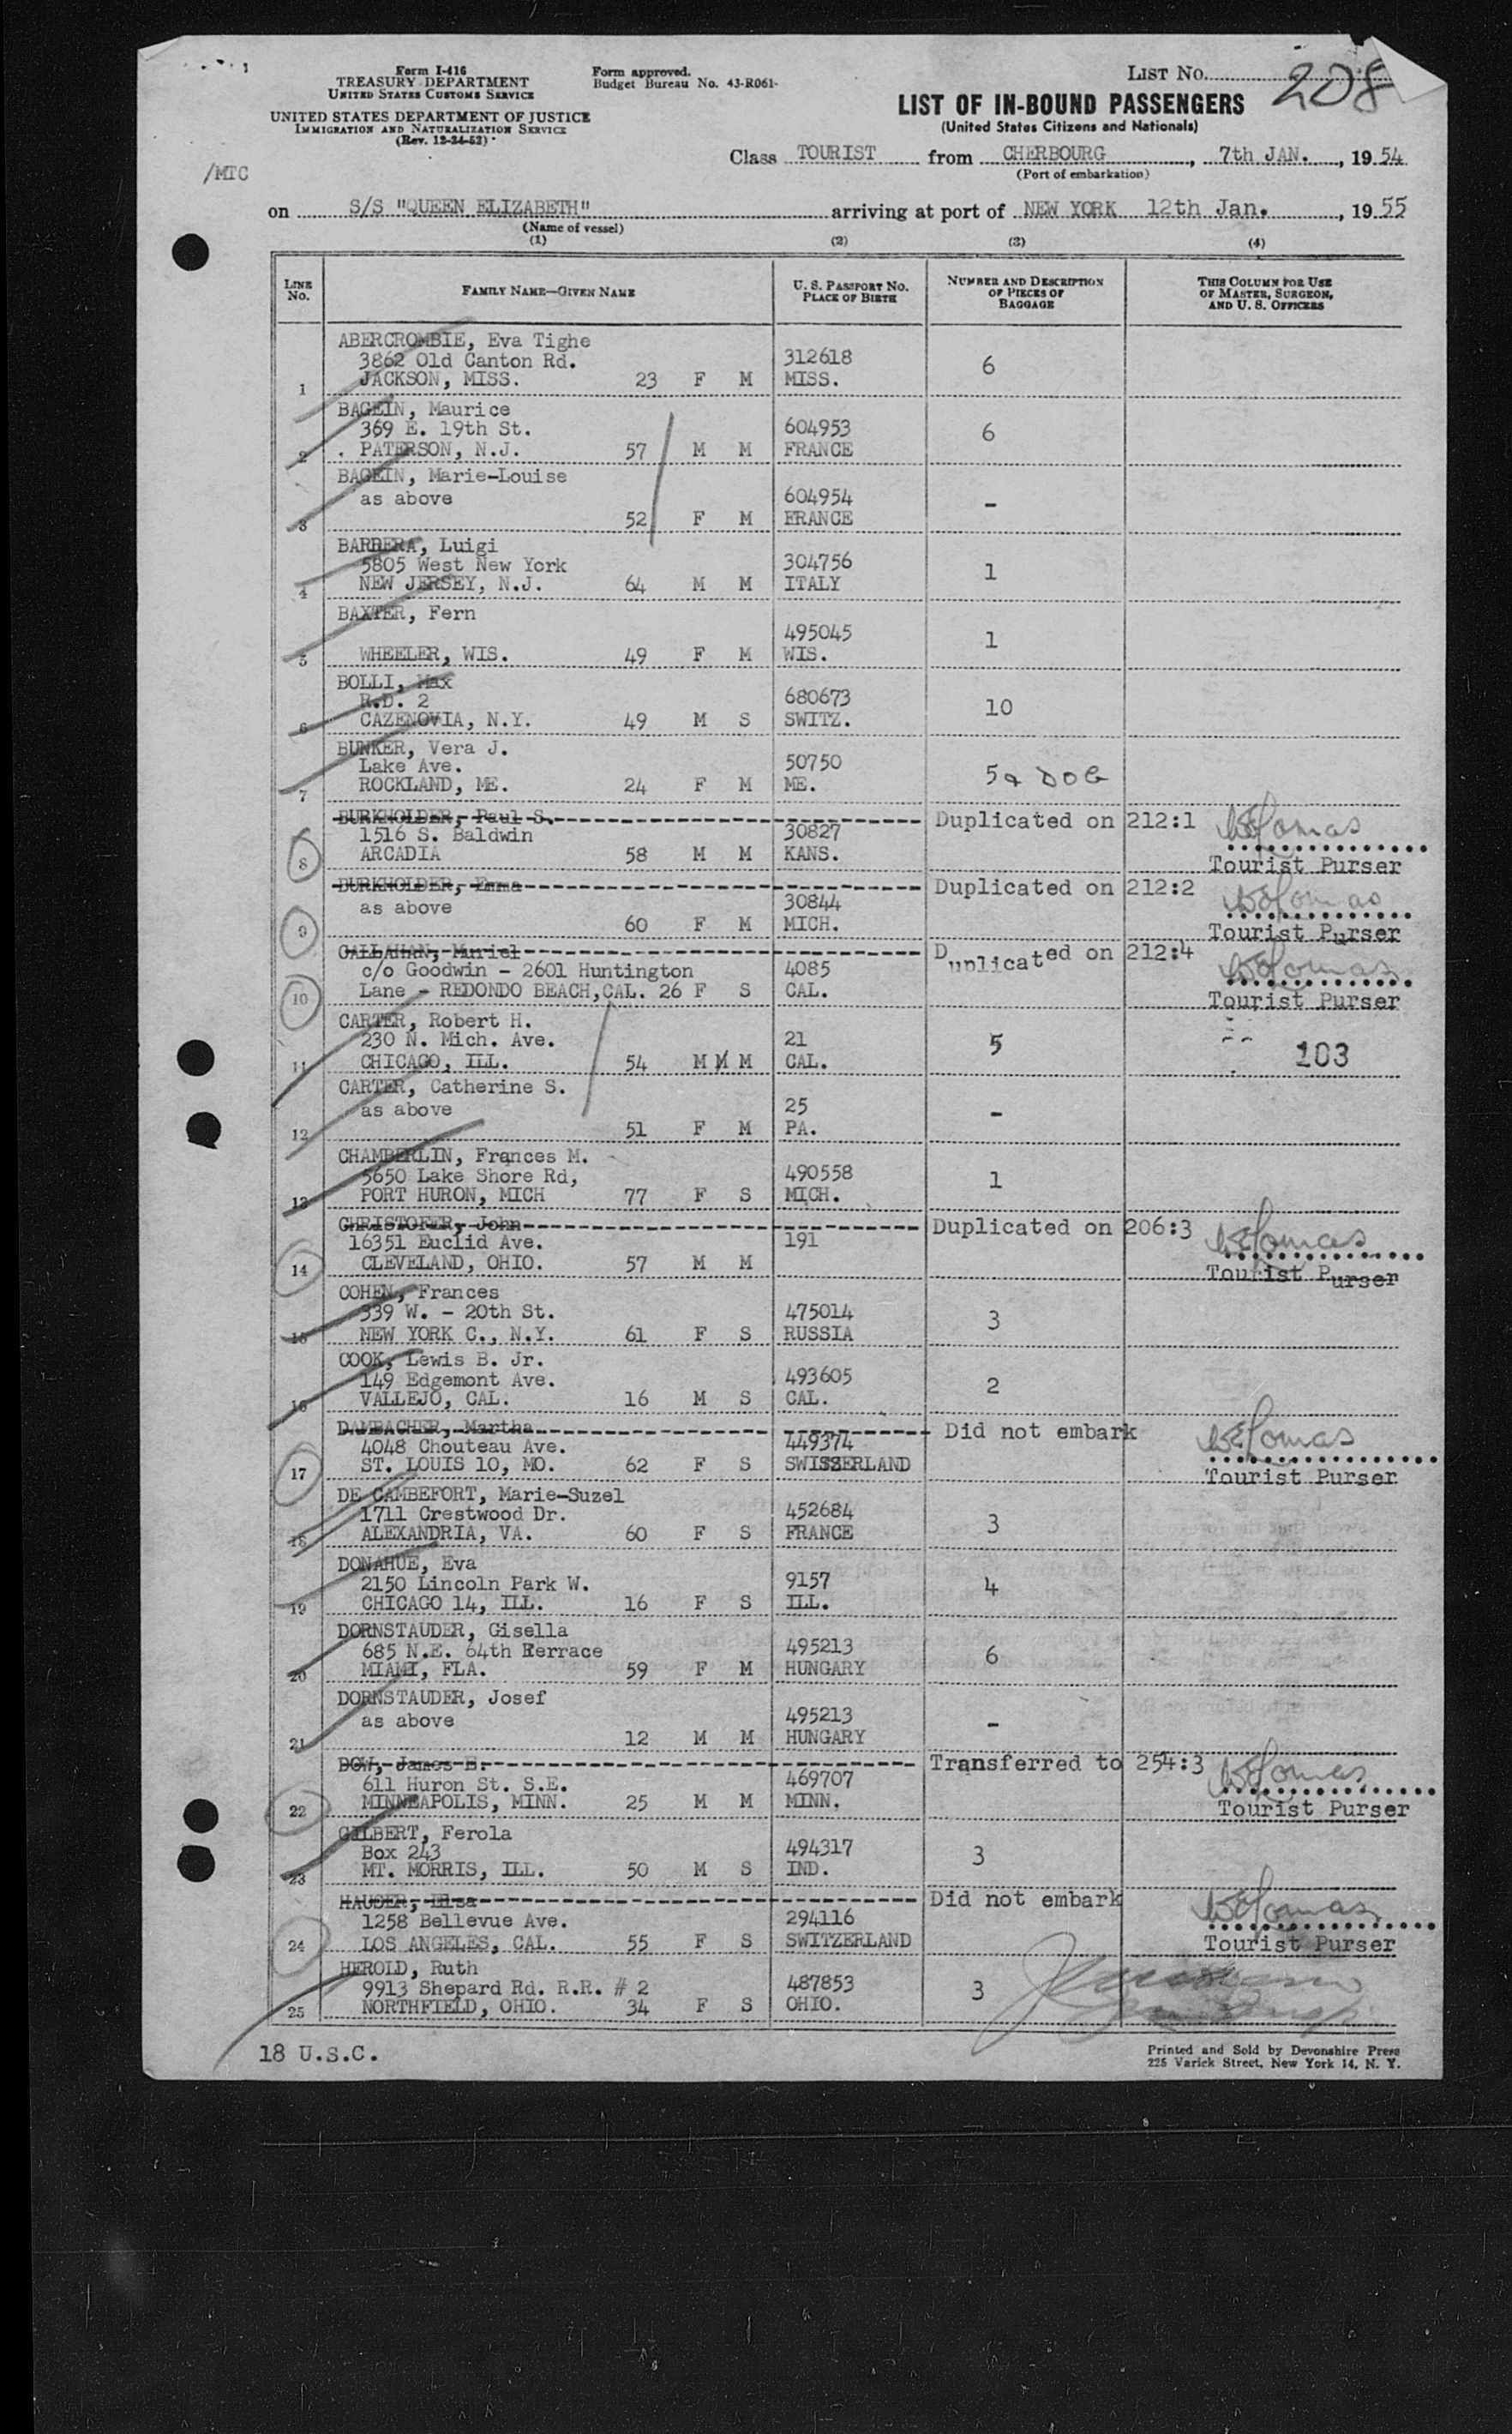 Form I-416
TREASURY DEPARTMENT
UNITED STATES CUSTOMS SERVICE
UNITED STATES DEPARTMENT OF JUSTICE
IMMIGRATION AND NATURALIZATION SERVICE
(Rev. 12-24-52)
Form approved.
Budget Bureau No. 43-R061-
LIST NO. 208
LIST OF IN-BOUND PASSENGERS
(United States Citizens and Nationals)
/MTC
Class TOURIST from CHERBOURG, 7th JAN., 1954
(Port of embarkation)
on S/S "QUEEN ELIZABETH" arriving at port of NEW YORK 12th Jan., 1955
(Name of vessel)
(1) (2) (3) (4)
LINE NO. FAMILY NAME—GIVEN NAME U. S. PASSPORT NO. PLACE OF BIRTH NUMBER AND DESCRIPTION OF PIECES OF BAGGAGE THIS COLUMN FOR USE OF MASTER, SURGEON, AND U. S. OFFICERS
ABERCROMBIE, Eva Tighe
3862 Old Canton Rd. 312618 6
1 JACKSON, MISS. 23 F M MISS.
BAGEIN, Maurice
369 E. 19th St. 604953 6
2 . PATERSON, N.J. 57 M M FRANCE
BAGEIN, Marie-Louise
as above 604954 -
3 52 F M FRANCE
BARBERA, Luigi
5805 West New York 304756 1
4 NEW JERSEY, N.J. 64 M M ITALY
BAXTER, Fern
495045 1
5 WHEELER, WIS. 49 F M WIS.
BOLLI, Max
R.D. 2 680673 10
6 CAZENOVIA, N.Y. 49 M S SWITZ.
BUNKER, Vera J.
Lake Ave. 50750 5 & DOG
7 ROCKLAND, ME. 24 F M ME.
BURKHOLDER, Paul S. Duplicated on 212:1
1516 S. Baldwin 30827
8 ARCADIA 58 M M KANS. Tourist Purser
BURKHOLDER, Emma Duplicated on 212:2
as above 30844
9 60 F M MICH. Tourist Purser
CALLAHAN, Muriel Duplicated on 212:4
c/o Goodwin - 2601 Huntington 4085
10 Lane - REDONDO BEACH, CAL. 26 F S CAL. Tourist Purser
CARTER, Robert H.
230 N. Mich. Ave. 21 5 103
11 CHICAGO, ILL. 54 M M M CAL.
CARTER, Catherine S.
as above 25 -
12 51 F M PA.
CHAMBERLIN, Frances M.
5650 Lake Shore Rd, 490558 1
13 PORT HURON, MICH 77 F S MICH.
CHRISTOFER, John Duplicated on 206:3
16351 Euclid Ave. 191
14 CLEVELAND, OHIO. 57 M M Tourist Purser
COHEN, Frances
339 W. - 20th St. 475014 3
15 NEW YORK C., N.Y. 61 F S RUSSIA
COOK, Lewis B. Jr.
149 Edgemont Ave. 493605 2
16 VALLEJO, CAL. 16 M S CAL.
DAMBACHER, Martha Did not embark
4048 Chouteau Ave. 449374
17 ST. LOUIS 10, MO. 62 F S SWISZERLAND Tourist Purser
DE CAMBEFORT, Marie-Suzel
1711 Crestwood Dr. 452684 3
18 ALEXANDRIA, VA. 60 F S FRANCE
DONAHUE, Eva
2150 Lincoln Park W. 9157 4
19 CHICAGO 14, ILL. 16 F S ILL.
DORNSTAUDER, Gisella
685 N.E. 64th Eerrace 495213 6
20 MIAMI, FLA. 59 F M HUNGARY
DORNSTAUDER, Josef
as above 495213 -
21 12 M M HUNGARY
DOW, James E. Transferred to 254:3
611 Huron St. S.E. 469707
22 MINNEAPOLIS, MINN. 25 M M MINN. Tourist Purser
GILBERT, Ferola
Box 243 494317 3
23 MT. MORRIS, ILL. 50 M S IND.
HAUSER, Elsa Did not embark
1258 Bellevue Ave. 294116
24 LOS ANGELES, CAL. 55 F S SWITZERLAND Tourist Purser
HEROLD, Ruth
9913 Shepard Rd. R.R. # 2 487853 3
25 NORTHFIELD, OHIO. 34 F S OHIO.
18 U.S.C.
Printed and Sold by Devonshire Press
225 Varick Street, New York 14, N. Y.